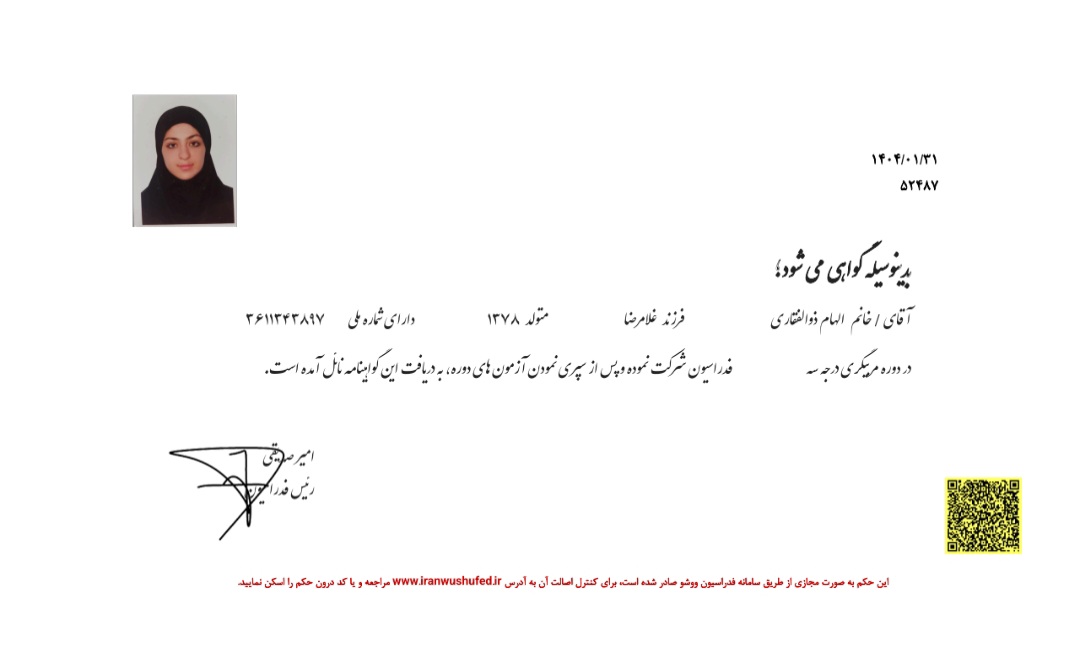 ۱۴۰۴/۰۱/۳۱
۵۲۴۸۷
بدینوسیله گواهی می شود؛
آقای / خانم الهام ذوالفقاری فرزند غلامرضا متولد ۱۳۷۸ دارای شماره ملی ۳۶۱۱۳۴۳۸۹۷
در دوره مربیگری درجه سه فدراسیون شرکت نموده و پس از سپری نمودن آزمون های دوره، به دریافت این گواهینامه نائل آمده است.
امیر صدیقی
رئیس فدراسیون
این حکم به صورت مجازی از طریق سامانه فدراسیون ووشو صادر شده است، برای کنترل اصالت آن به آدرس www.iranwushufed.ir مراجعه و یا کد درون حکم را اسکن نمایید.